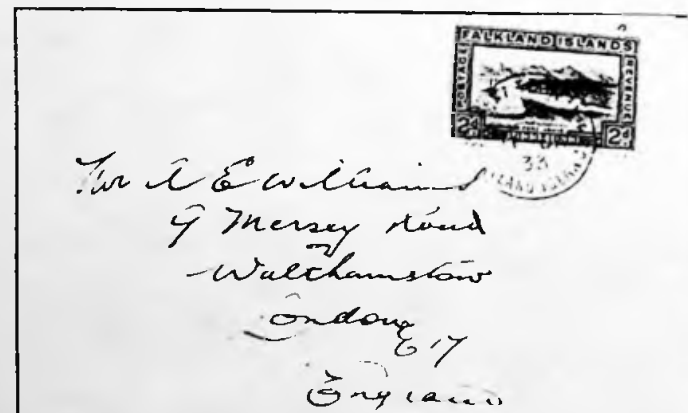 FALKLAND ISLANDS
POSTAGE
REVENUE
2d 2d
33
FALKLAND ISLANDS
Mr A E Williams
9 Mersey Road
Walthamstow
London
E 17
England